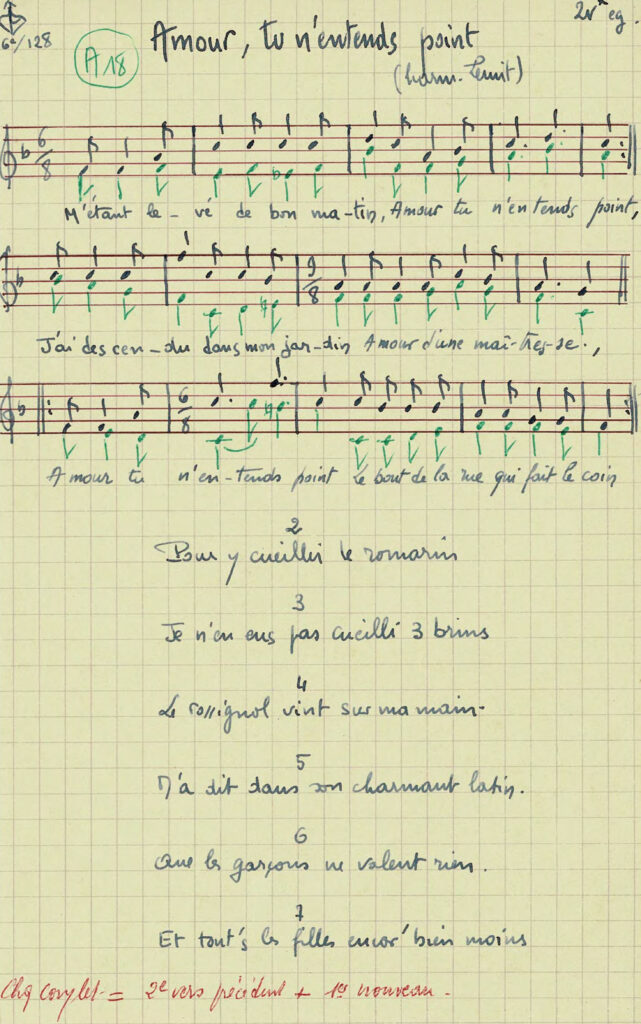 2v x eg.
6e/128
A18
Amour, tu n'entends point
(harm. Lenoit)
6/8
M'étant le-vé de bon ma-tin, Amour tu n'en tends point,
9/8
J'ai des cen-du dans mon jar-din Amour d'une maî-tres-se.,
6/8
Amour tu n'en-tends point Le bout de la rue qui fait le coin
2
Pour y cueillir le romarin
3
Je n'en eus pas cueilli 3 brins
4
Le rossignol vint sur ma main-
5
M'a dit dans son charmant latin.
6
Que les garçons ne valent rien.
7
Et tout's les filles encor' bien moins
Chq couplet = 2e vers précédent + 1er nouveau.